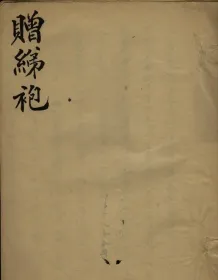 贈綈袍